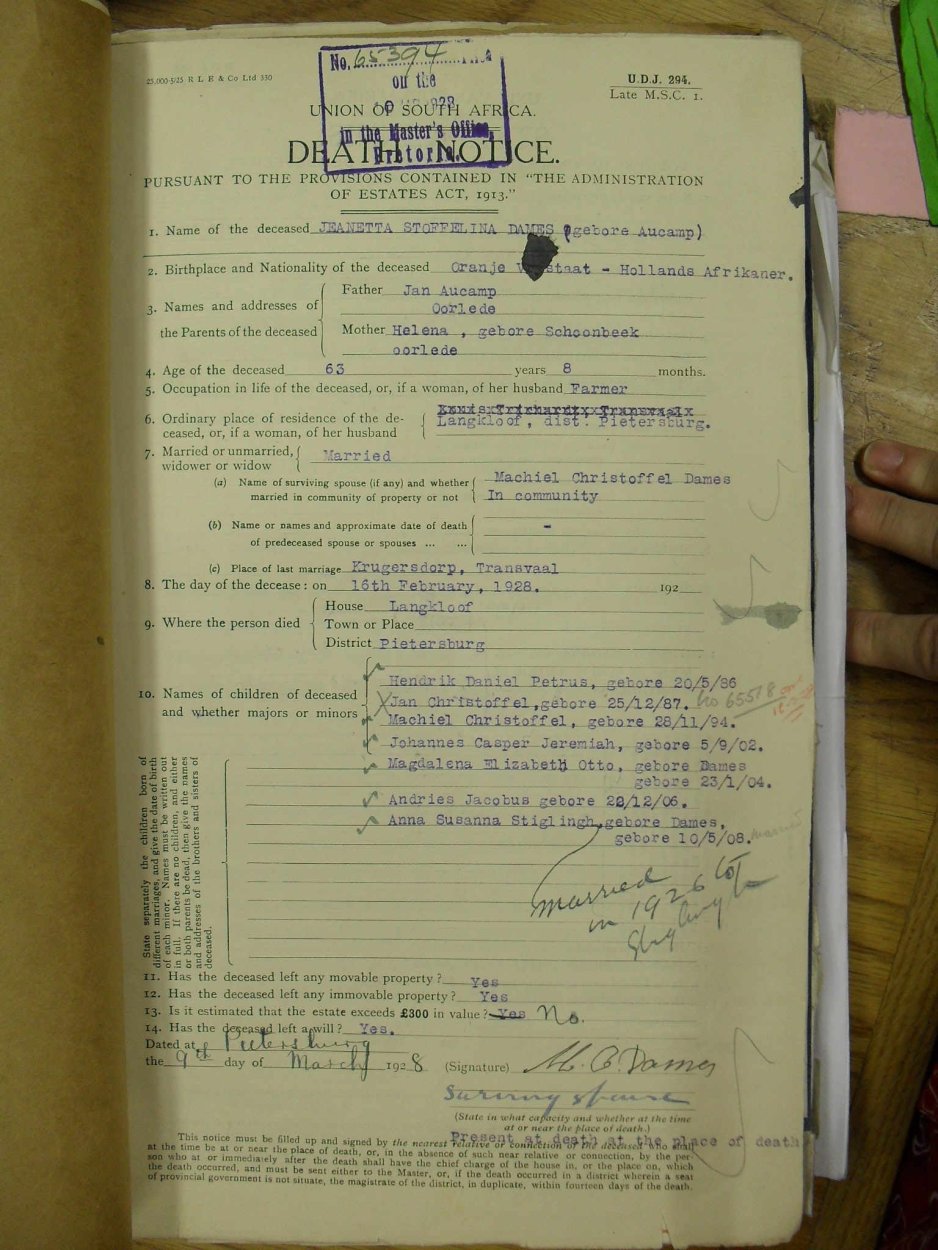 25,000-5/25 R L E & Co Ltd 330
No. 65394
on the
in the Master's Office,
Pretoria.
U.D.J. 294.
Late M.S.C. 1.
UNION OF SOUTH AFRICA.
DEATH NOTICE.
PURSUANT TO THE PROVISIONS CONTAINED IN "THE ADMINISTRATION
OF ESTATES ACT, 1913."
1. Name of the deceased JEANETTA STOFFELINA DAMES (gebore Aucamp)
2. Birthplace and Nationality of the deceased Oranje Vrystaat - Hollands Afrikaner.
3. Names and addresses of the Parents of the deceased
Father Jan Aucamp
Oorlede
Mother Helena , gebore Schoonbeek
oorlede
4. Age of the deceased 63 years 8 months.
5. Occupation in life of the deceased, or, if a woman, of her husband Farmer
6. Ordinary place of residence of the de-
ceased, or, if a woman, of her husband
Langkloof, dist. Pietersburg.
7. Married or unmarried,
widower or widow
Married
(a) Name of surviving spouse (if any) and whether
married in community of property or not
Machiel Christoffel Dames
In community
(b) Name or names and approximate date of death
of predeceased spouse or spouses ... ...
-
(c) Place of last marriage Krugersdorp, Transvaal
8. The day of the decease: on 16th February, 1928. 192
9. Where the person died
House Langkloof
Town or Place
District Pietersburg
10. Names of children of deceased
and whether majors or minors
Hendrik Daniel Petrus, gebore 20/5/86
Jan Christoffel,gebore 25/12/87. No 65518
Machiel Christoffel, gebore 28/11/94.
Johannes Casper Jeremiah, gebore 5/9/02.
Magdalena Elizabeth Otto, gebore Dames
gebore 23/1/04.
Andries Jacobus gebore 22/12/06.
Anna Susanna Stiglingh,gebore Dames,
gebore 10/5/08. married
married
in 1926 to
State separately the children born of
different marriages, and give the date of birth
of each minor. Names must be written out
in full. If there are no children, and either
or both parents be dead, then give the names
and addresses of the brothers and sisters of
deceased.
11. Has the deceased left any movable property? Yes
12. Has the deceased left any immovable property? Yes
13. Is it estimated that the estate exceeds £300 in value? Yes No.
14. Has the deceased left a will? Yes.
Dated at Pietersburg
the 9th day of March 1928 (Signature) M. C. Dames
Surviving spouse
(State in what capacity and whether at the time
at or near the place of death.)
Present at death at the place of death
This notice must be filled up and signed by the nearest relative or connection of the deceased who shall
at the time be at or near the place of death, or, in the absence of such near relative or connection, by the per-
son who at or immediately after the death shall have the chief charge of the house in, or the place on, which
the death occurred, and must be sent either to the Master, or, if the death occurred in a district wherein a seat
of provincial government is not situate, the magistrate of the district, in duplicate, within fourteen days of the death.